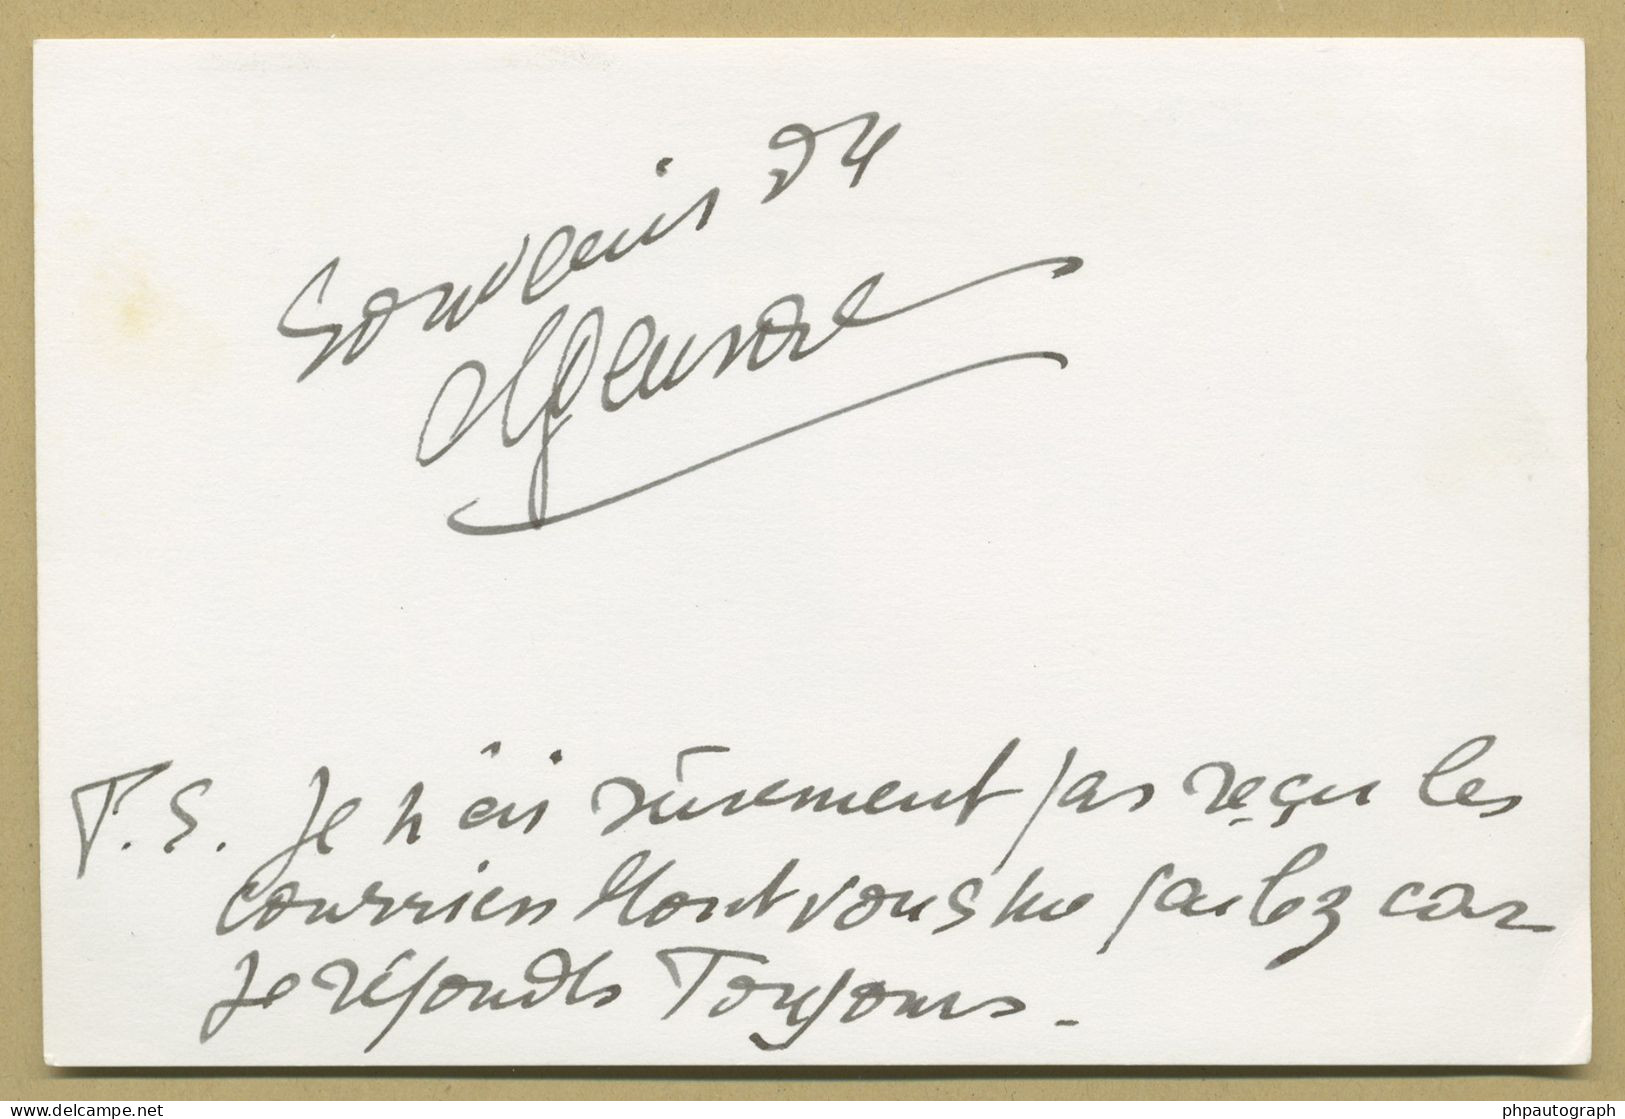 Souvenir 94
P.S. Je n'ai sûrement pas reçu les
courriers dont vous me parlez car
je réponds Toujours.
delcampe.net
phpautograph